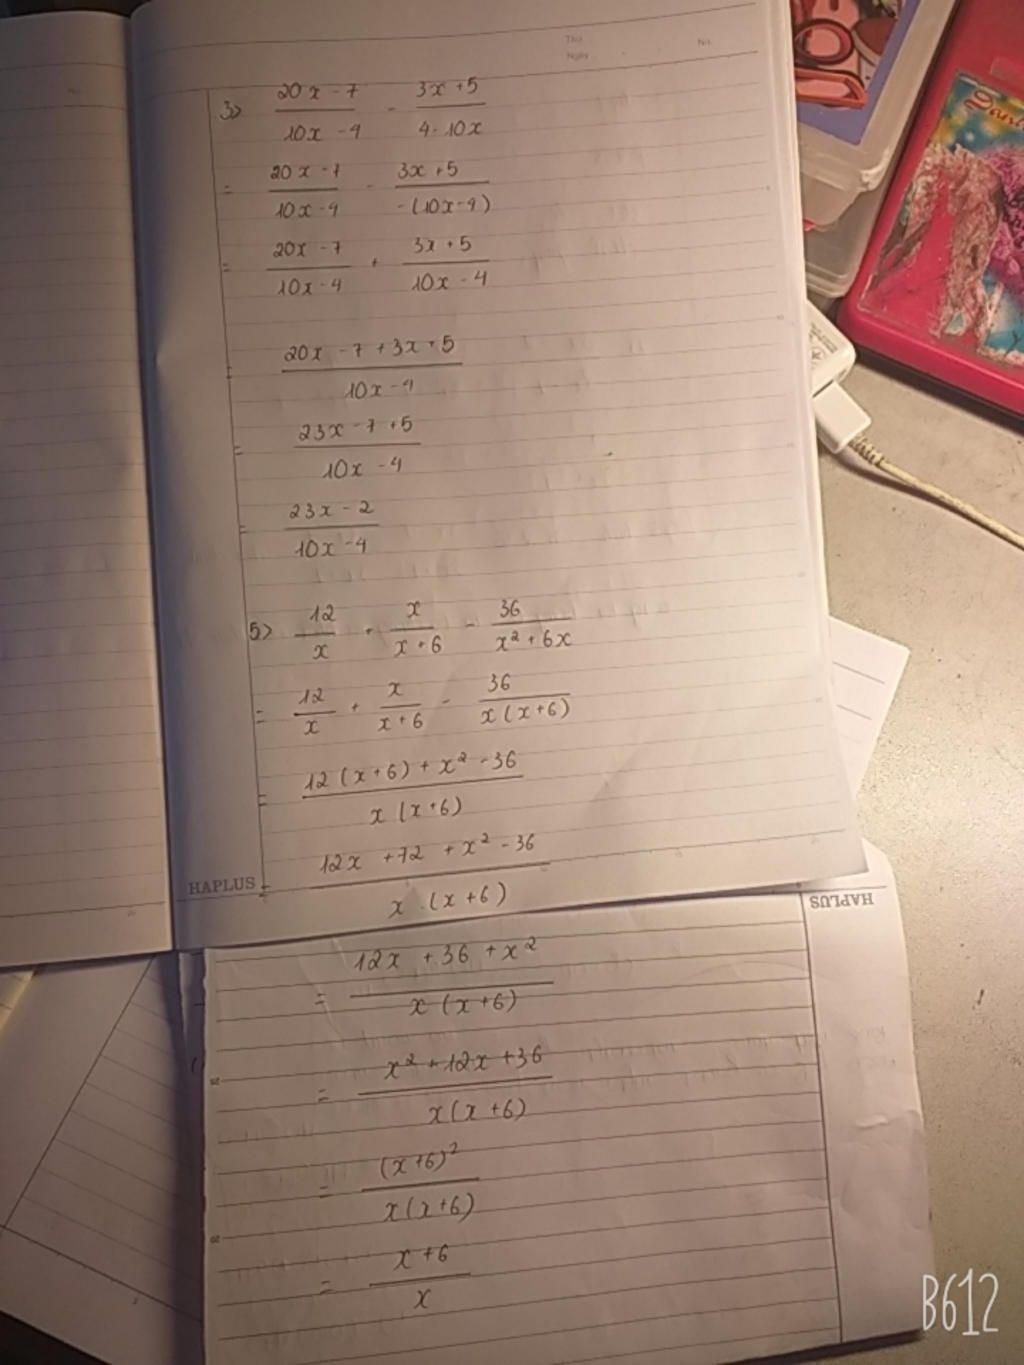 Thứ
Ngày
No.
3> (20x - 7)/(10x - 4) - (3x + 5)/(4 - 10x)
= (20x - 7)/(10x - 4) - (3x + 5)/(-(10x - 4))
= (20x - 7)/(10x - 4) + (3x + 5)/(10x - 4)
= (20x - 7 + 3x + 5)/(10x - 4)
= (23x - 7 + 5)/(10x - 4)
= (23x - 2)/(10x - 4)
5> 12/x + x/(x + 6) - 36/(x² + 6x)
= 12/x + x/(x + 6) - 36/(x(x + 6))
= (12(x + 6) + x² - 36)/(x(x + 6))
= (12x + 72 + x² - 36)/(x.(x + 6))
HAPLUS
HAPLUS
= (12x + 36 + x²)/(x(x + 6))
= (x² + 12x + 36)/(x(x + 6))
= (x + 6)²/(x(x + 6))
= (x + 6)/x
B612